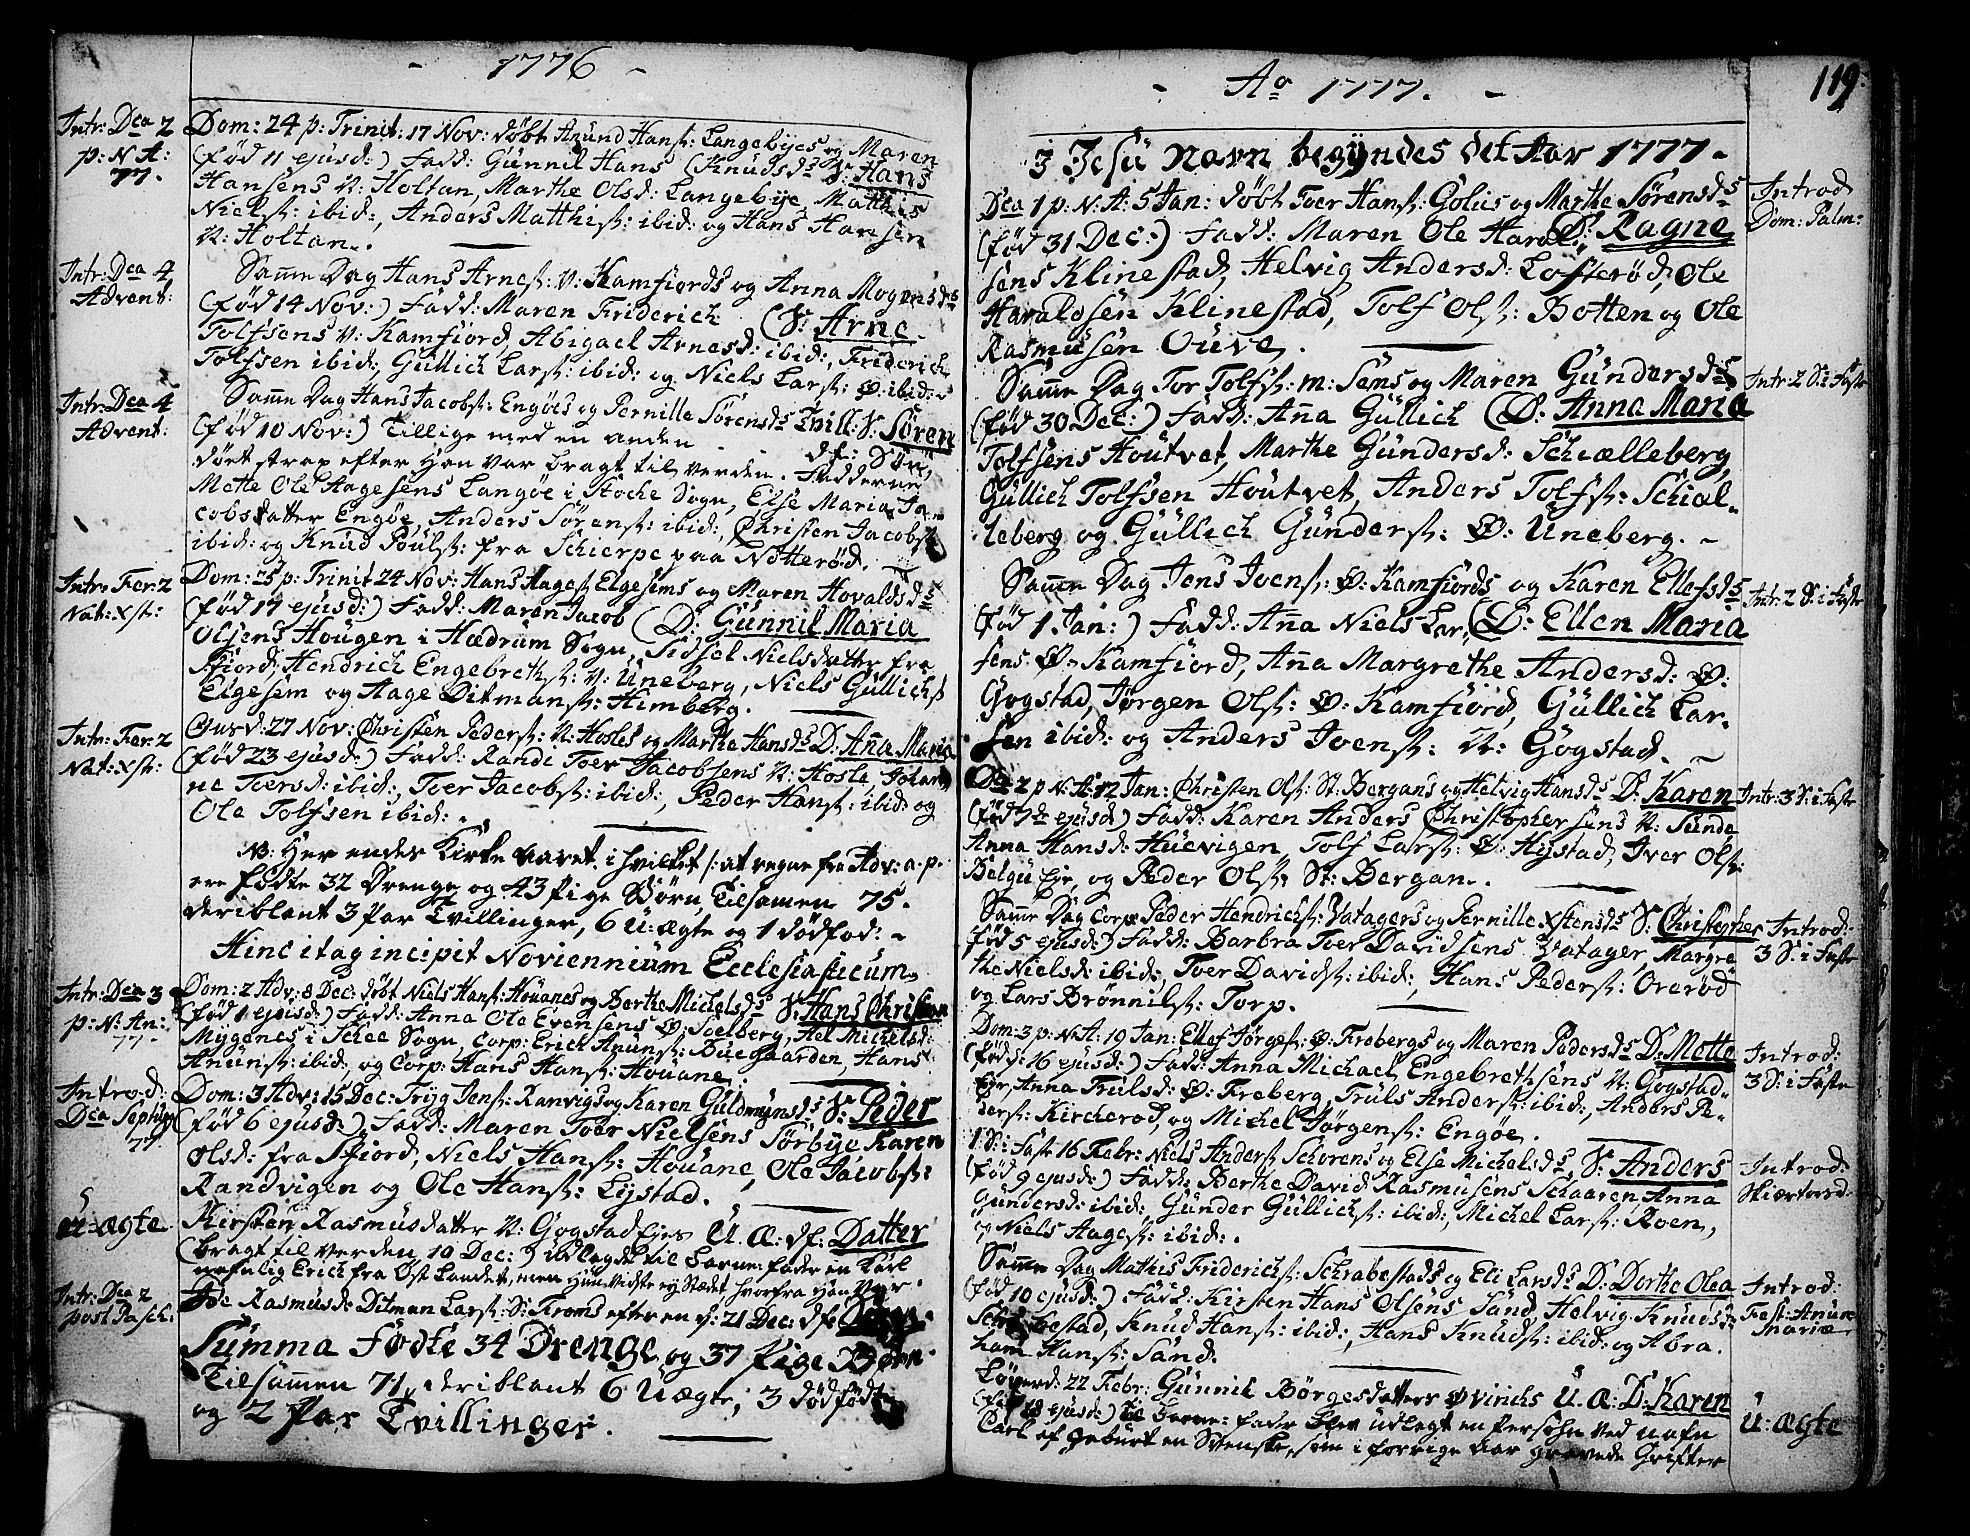 - 1776 -
Intr: Dca 2
p: N A:
77.
Dom: 24 p: Trinit: 17 Nov: døbt Anund Hansß: Langebyes og Maren
(fød 11 ejusd:) Fadd: Gunnil Hans (Knudsds S: Hans
Hansens N: Holtan, Marthe Olsd: Langebye, Matthis
Nielsß: ibid:, Anders Matthisß: ibid: og Hans Hansen
N: Holtan.
Intr: Dca 4
Advent:
Samme Dag Hans Arnesß: V: Kamfiords og Anna Mogensds
(fød 14 Nov:) Fadd: Maren Friderich (S: Arne
Tolfsens V: Kamfiord, Abigael Arnesd: ibid:, Friderich
Tolfsen ibid:, Gullich Larsß: ibid: og Niels Larsß: Ø: ibid:
Intr: Dca 4
Advent:
Samme Dag Hans Jacobsß: Engøes og Pernille Sørensds Tvill: S: Søren
(fød 10 Nov:) Tillige med en anden df: Søn,
døet strax efter Han var bragt til verden. Fadderne
Mette Ole Aagesens Langøe i Stocke Sogn, Else Maria Ja-
cobsdatter Engøe, Anders Sørensß: ibid:, Christen Jacobsß
ibid: og Knud Poulsß: fra Schierpe paa Nøtterød.
Intr: Fer: 2
Nat: Xsti:
Dom: 25 p: Trinit 24 Nov: Hans Aagesß Elgesems og Maren Hovaldsds
(fød 17 ejusd:) Fadd: Maren Jacob (D: Gunnil Maria
Olsens Hougen i Hædrum Sogn, Sidsel Nielsdatter fra
Fjord, Hendrich Engebrethsß: V: Uneberg, Niels Gullichsß
Elgesem og Aage Ditmansß: Himberg.
Intr: Fer: 2
Nat: Xsti:
Onsd: 27 Nov: Christen Pedersß: N: Hosles og Marthe Hansds D: Anna Maria
(fød 23 ejusd:) Fadd: Randi Toer Jacobsens N: Hosle, Johan-
ne Toersd: ibid:, Toer Jacobsß: ibid:, Peder Hansß: ibid: og
Ole Tolfsen ibid:.
NB: Her ender Kirke Aaret, i hvilket /: at regne fra Adv: a. p.
ere fødte 32 Drenge og 43 Pige Børn, Tilsamen 75.
deriblant 3 Par Tvillinger, 6 U: ægte og 1 dødfød:
Hinc itaq incipit Noviennium Ecclesiasticum.
Intr: Dca 3
p: N: An:
77
Dom: 2 Adv: 8 Dec: døbt Niels Hansß: Houanes og Berthe Michelsds S: Hans Christian
(fød 1 ejusd:) Fadd: Anna Ole Evensens Ø: Soelberg, Ael Michelsd:
Mygenes i Schee Sogn, Corp: Erich Anunsß: Buegaarden, Hans
Anunsß: ibid:, og Corp: Hans Hansß: Houane.
Introd:
Dca Septuag
77
Dom: 3 Adv: 15 Dec: Tryg Jensß: Ranvigs og Karen Guldmynsds S: Peder
(fød 6 ejusd:) Fadd: Maren Toer Nielsens Sørbye, Karen
Olsd: fra Fjord, Niels Hansß: Houane, Ole Jacobsß:
Randvigen og Ole Hansß: Lystad.
U: ægte
Kirsten Rasmusdatter N: Gogstad Ejes U. Æ. df: Datter
(bragt til verden, 19 Dec:) Udlagdt til Barne: fader en Karl
nafnlig Erich fra Øst Landet, men Hun vidste ey Stædet hvorfra Han var
Intr: Dca 2
post Pasch:
Rasmusd: Ditman Larsß: S: Kroms efter en 21 Dec: df:
Summa Fødte 34 Drenge og 37 Pige Børn
Tilsamen 71, deriblant 6 Uægte, 3 dødfødte
og 2 Par Tvillinger.
Ao 1777.
119.
I Jesu Navn begyndes det Aar 1777.
Introd
Dom: Palm:
Dca 1 p: N: A: 5 Jan: døbt Toer Hansß: Golis og Marthe Sørensds
(fød 31 Dec:) Fadd: Maren Ole Haral- D: Ragne
sens Klinestad, Helvig Andersd: Lofterød, Ole
Haraldsen Klinestad, Tolf Olsß: Botten og Ole
Rasmusen Ouve.
Intr: 2 S: i Faste
Samme Dag Tor Tolfsß: m: Sems og Maren Gundersds
(fød 30 Dec:) Fadd: Anna Gullich (D: Anna Maria
Tolfsens Houtvet, Marthe Gundersd: Schiælleberg,
Gullich Tolfsen Houtvet, Anders Tolfsß: Schiæl-
leberg og Gullich Gundersß: Ø: Uneberg.
Intr: 2 S: i Faste
Samme Dag Jens Ivensß: Ø: Kamfiords og Karen Ellefsds
(fød 1 Jan:) Fadd: Anna Niels Lar- (D: Ellen Maria
sens Ø: Kamfiord, Anna Margrethe Andersd: Ø:
Gogstad, Jørgen Olsß: Ø: Kamfiord, Gullich Lar-
sen ibid: og Anders Ivensß: N: Gogstad.
Intr: 3 S: i Faste
Dca 2 p N: A: 12 Jan: Christen Olsß: St: Bergans og Helvig Hansds D: Karen
(fød 7de ejusd:) Fadd: Karen Anders Christophersens N: Sunde
Anna Hansd: Huevigen, Tolf Larsß: Ø: Hystad, Iver Olsß:
Belgu Eje, og Peder Olsß: St: Bergan.
Introd:
3 S: i Faste
Samme Dag Corp: Peder Hendrichsß: Vatagers og Pernille Xstensds S: Christopher
fød 5 ejusd:) Fadd: Barbra Toer Davidsens Vatager, Margre
the Nielsd: ibid:, Toer Davidsß: ibid:, Hans Pedersß: Orerød
og Lars Brønnilsß: Torp.
Introd:
3 S: i Faste
Dom: 3 p: N: A: 19 Jan: Ellef Jørgesß: Ø: Frebergs og Maren Pedersds D: Mette
(fød: 16 ejusd:) Fadd: Anna Michael Engebrethsens N: Gogstad-
Eje, Anna Trulsd: Ø: Freberg, Truls Andersß: ibid:, Anders Pe-
dersß: Kircherød, og Michel Jørgensß: Engøe.
Introd:
Skiærtorsd:
1 S: i Faste 16 Febr: Niels Andersß Schorens og Else Michelsds S: Anders
(fød 9 ejusd:) Fadd: Berthe David Rasmusens Schaaren, Anna
Gundersd: ibid:, Gunder Gullichsß: ibid:, Michel Larsß: Roen,
og Niels Aagesß: ibid:.
Introd:
Fest: Anunc
Mariæ
Samme Dag Mathis Friderichsß: Schrabestads og Eli Larsds D: Dorthe Olea
(fød 10 ejusd:) Fadd: Kirsten Hans Olsens Sand, Helvig Knudsd:
Schrabestad, Knud Hansß: ibid:, Hans Knudsß: ibid: og Abra-
ham Hansß: Sand.
U: ægte
Løverd: 22 Febr: Gunnil Børgesdatters Øvirichs U. Æ: D: Karen
(fød 18 ejusd:) til Barne: fader blev udlegt en Persohn ved nafn
Carl af Geburt en Svenske, som i forrige Aar gravede Grifter